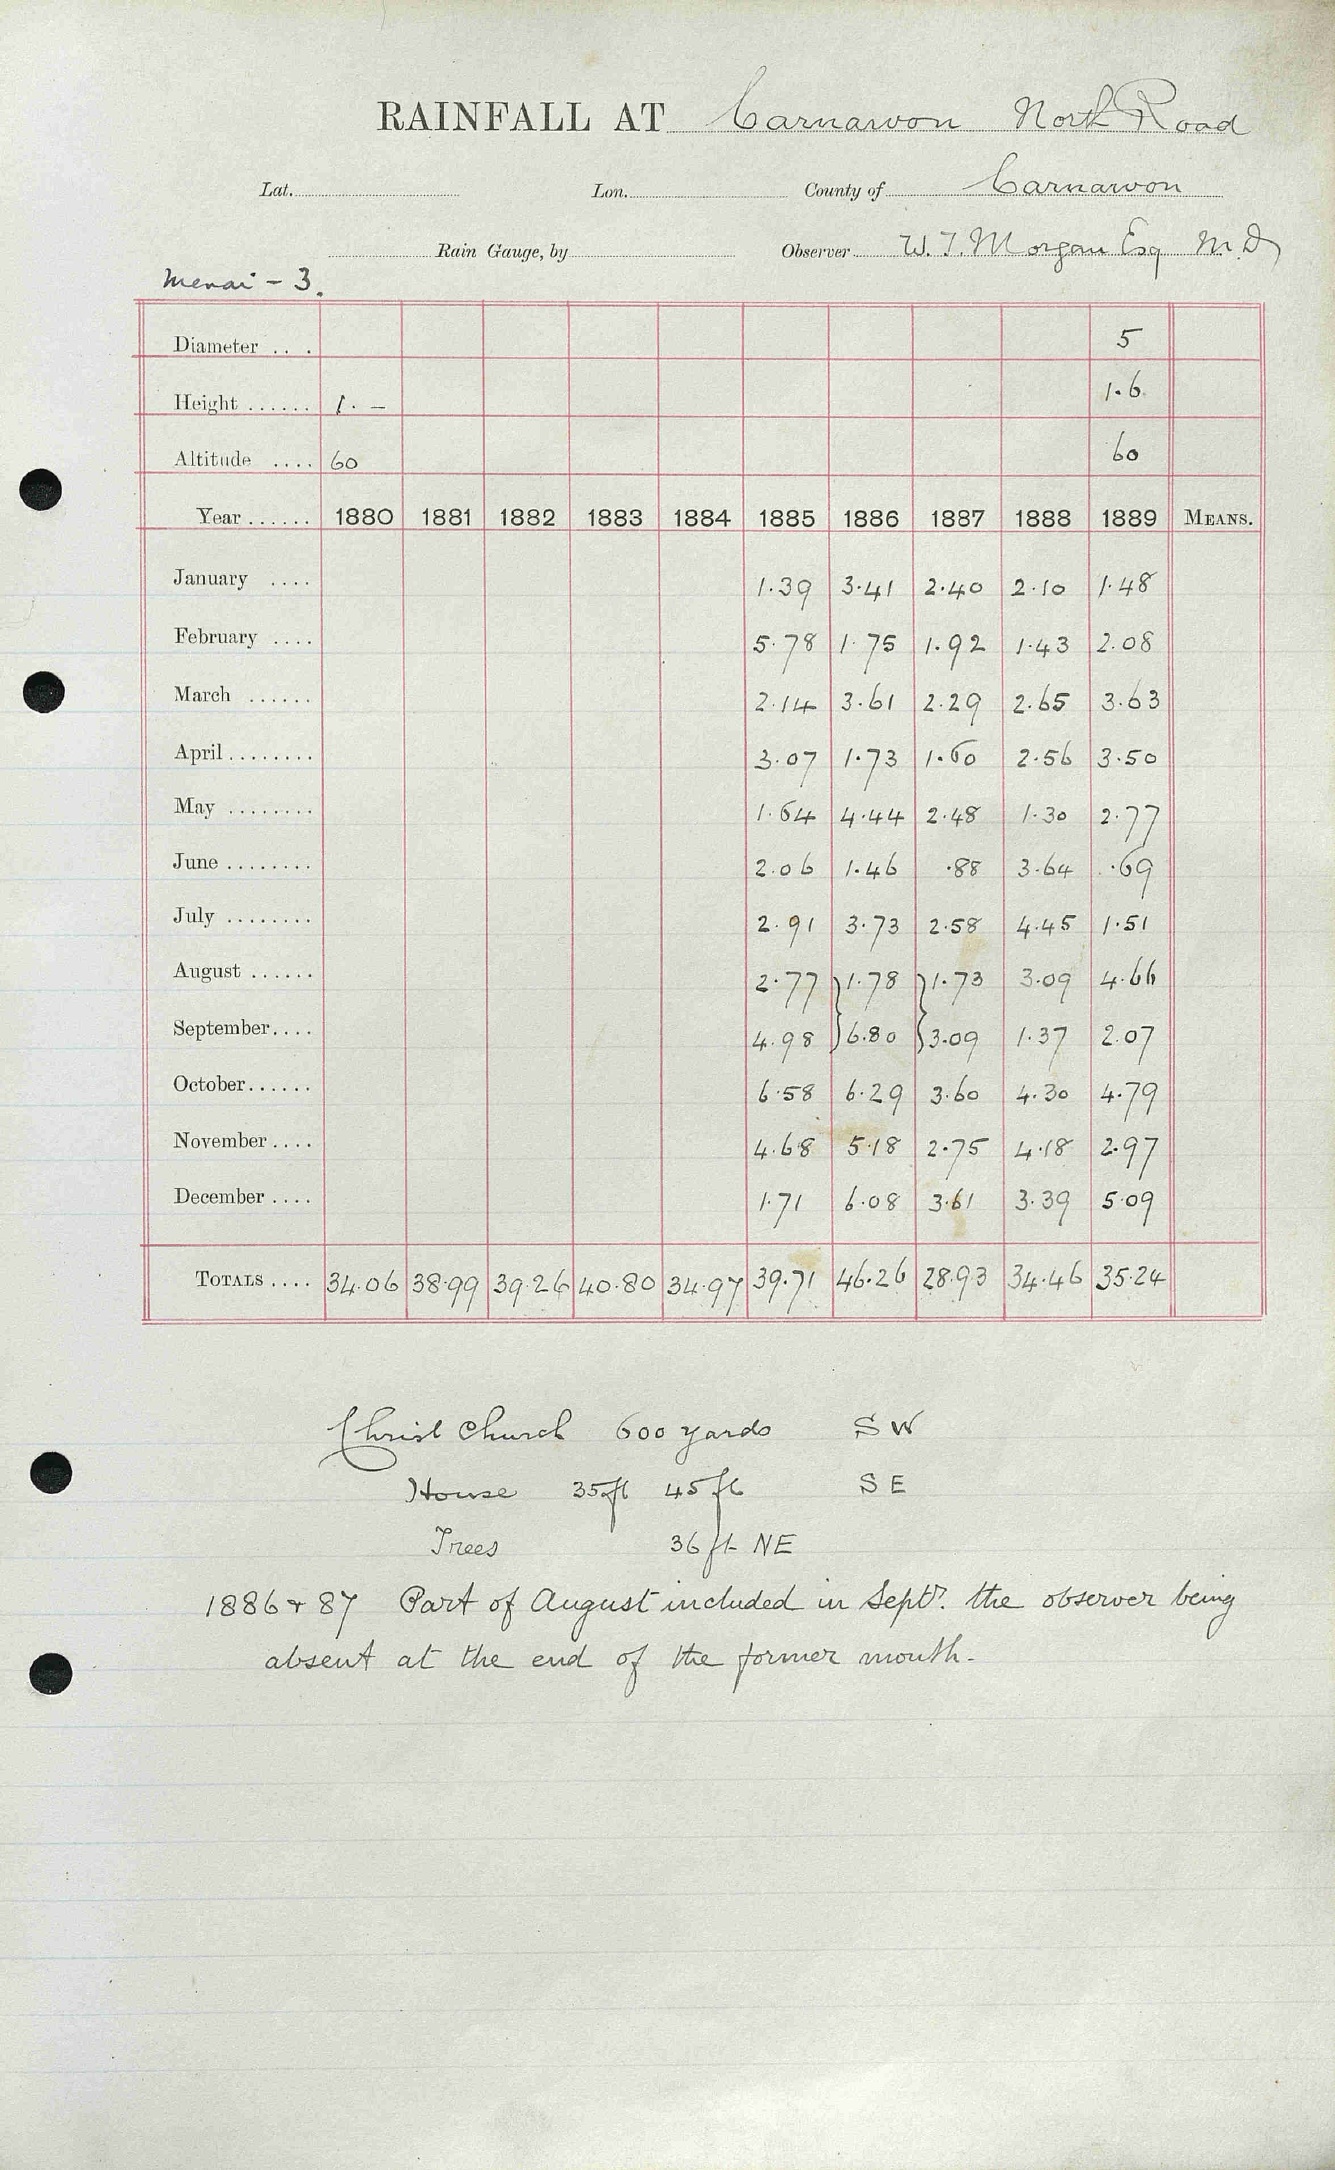 RAINFALL AT Carnarvon North Road
Lat. Lon. County of Carnarvon
Rain Gauge, by Observer W. T. Morgan Esq M.D
Menai - 3.
Diameter ... 5
Height ...... 1. - 1.6
Altitude .... 60 60
Year ...... 1880 1881 1882 1883 1884 1885 1886 1887 1888 1889 MEANS.
January .... 1.39 3.41 2.40 2.10 1.48
February .... 5.78 1.75 1.92 1.43 2.08
March ...... 2.14 3.61 2.29 2.65 3.63
April ........ 3.07 1.73 1.60 2.56 3.50
May ........ 1.64 4.44 2.48 1.30 2.77
June ........ 2.06 1.46 .88 3.64 .69
July ........ 2.91 3.73 2.58 4.45 1.51
August ...... 2.77 }1.78 }1.73 3.09 4.66
September.... 4.98 }6.80 }3.09 1.37 2.07
October...... 6.58 6.29 3.60 4.30 4.79
November .... 4.68 5.18 2.75 4.18 2.97
December .... 1.71 6.08 3.61 3.39 5.09
TOTALS .... 34.06 38.99 39.26 40.80 34.97 39.71 46.26 28.93 34.46 35.24
Christ Church 600 yards SW
House 35ft 45ft SE
Trees 36ft NE
1886 + 87 Part of August included in Septr. the observer being
absent at the end of the former month.